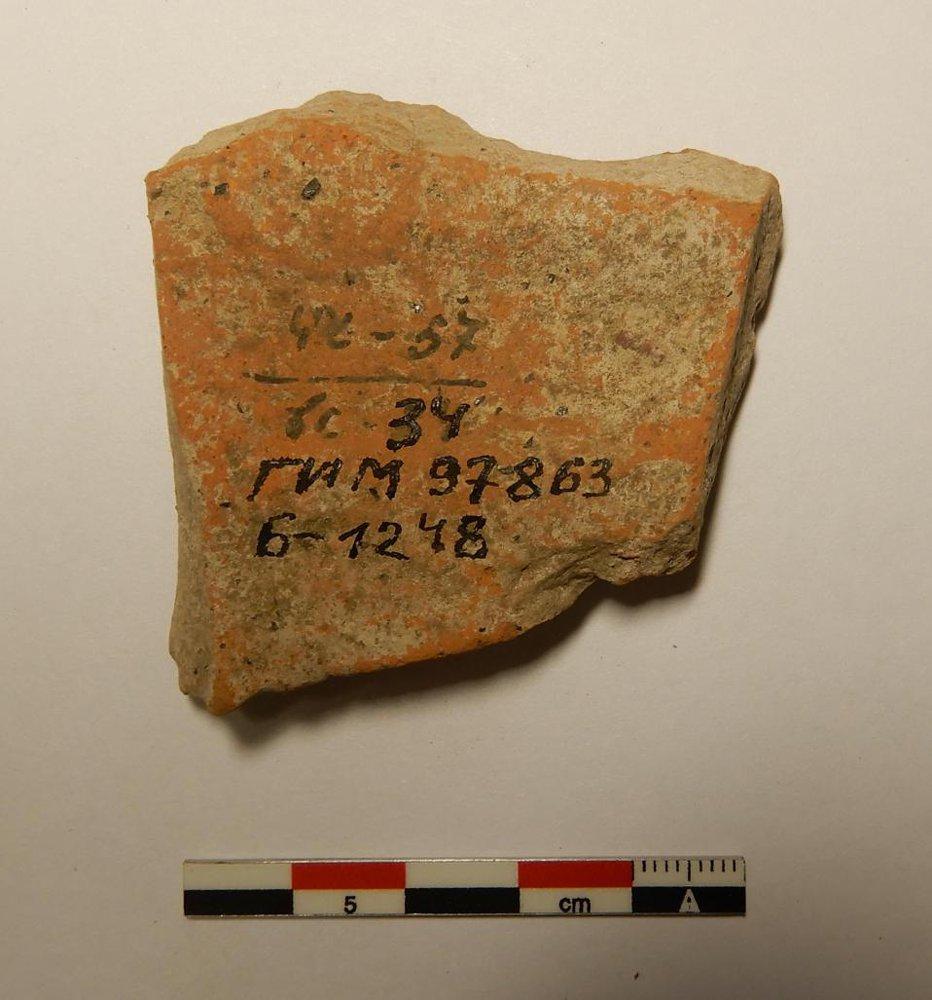 57
34
ГИМ 97863
Б-1248
5 cm